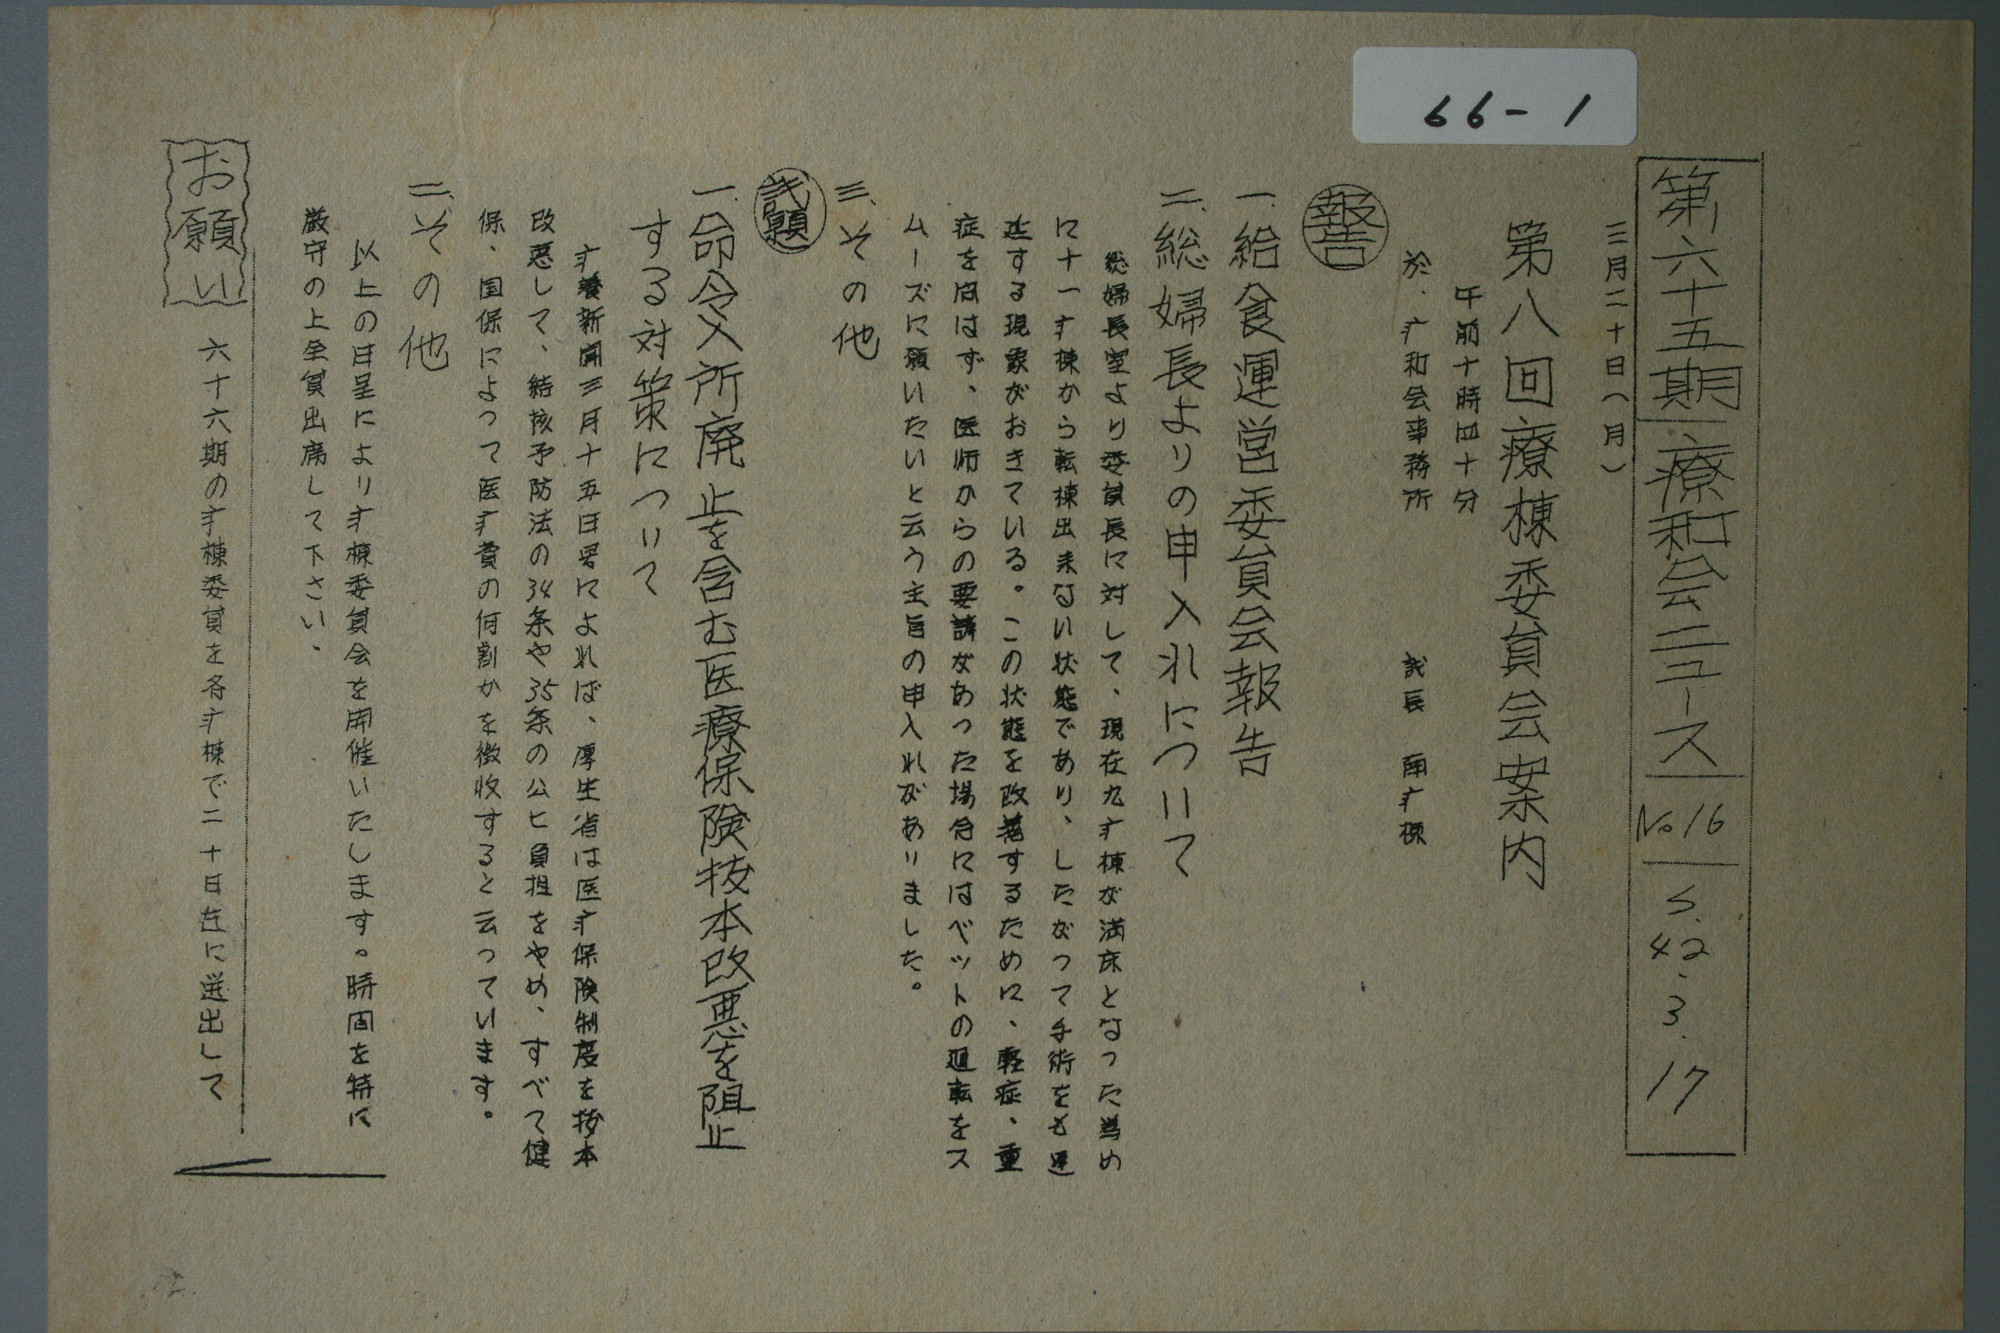 66-1
第六十五期 療和会ニュース No16 S.42.3.17
三月二十日(月)
第八回療棟委員会案内
午前十時四十分
於.疒和会事務所 議長 南疒棟
報告
一、給食運営委員会報告
二、総婦長よりの申入れについて
総婦長室より委員長に対して、現在九疒棟が満床となった為め
に十一疒棟から転棟出来ない状態であり、したがって手術をも遅
延する現象がおきている。この状態を改善するために、軽症、重
症を向はず、医师からの要請があった場合にはベットの廻転をス
ムーズに願いたいと云う主旨の申入れがありました。
三、その他
議題
一、命令入所廃止を含む医療保険抜本改悪を阻止
する対策について
疒養新聞三月十五日号によれば、厚生省は医疒保険制度を抜本
改悪して、結核予防法の34条や35条の公ヒ負担をやめ、すべて健
保、国保によって医疒費の何割かを徴収すると云っています。
二、その他
以上の日呈により疒棟委員会を開催いたします。時間を特に
厳守の上全員出席して下さい、
お願い 六十六期の疒棟委員を各疒棟で二十日迄に送出して